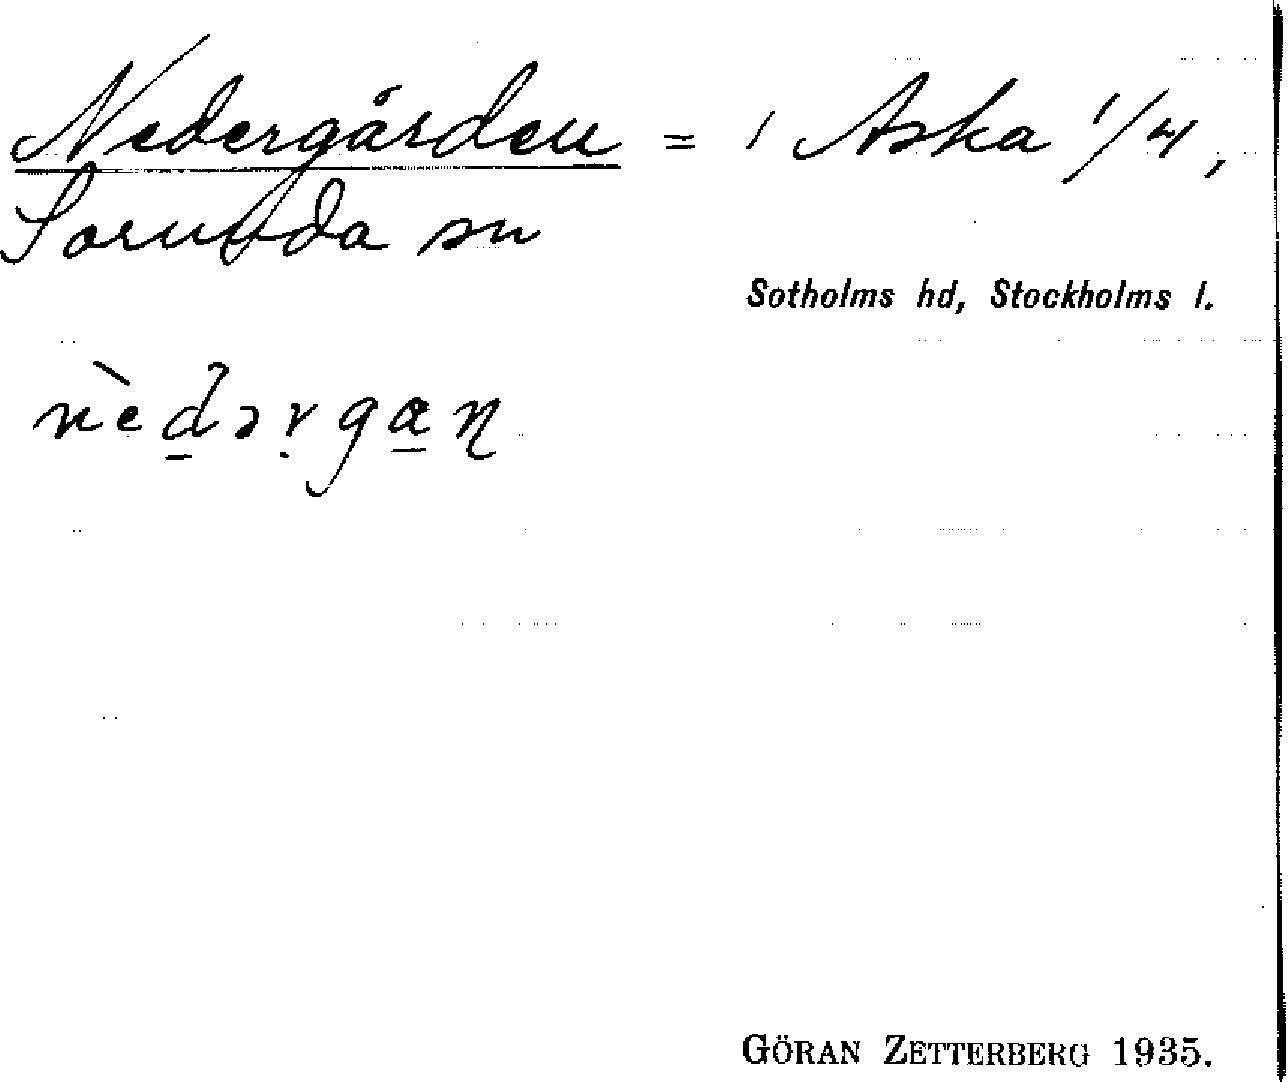 Nedergården = 1 Aska 1/4,
Sorunda sn
Sotholms hd, Stockholms l.
nèdərgan
GÖRAN ZETTERBERG 1935.